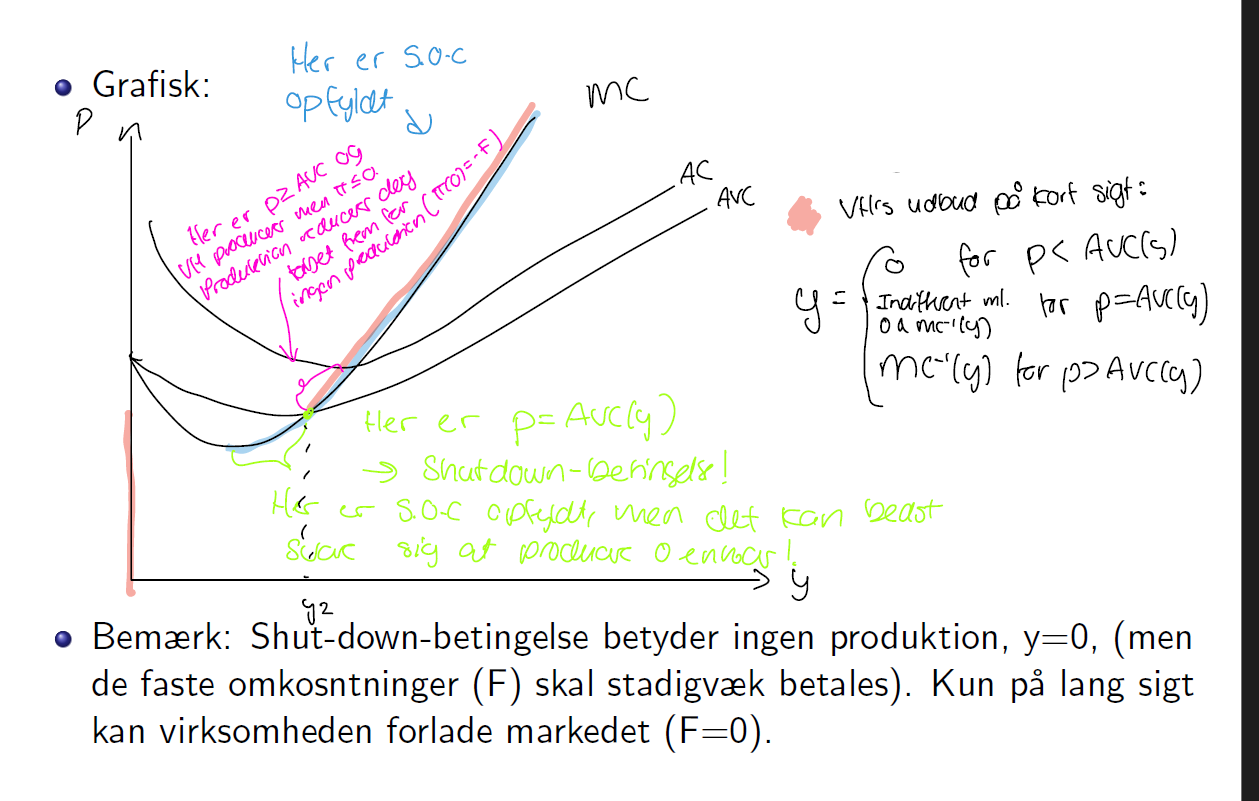 Her er S.O.C
opfyldt
Grafisk:
MC
P
Her er p≥AVC og
VH producerer men π≤0.
Produktion reducerer dog
tabet frem for
ingen produktion (π(0)=-F)
AC
AVC
VHrs udbud på kort sigt:
y =
0 for p< AVC(y)
Indifferent ml. for p=AVC(y)
0 & MC⁻¹(y)
MC⁻¹(y) for p>AVC(y)
Her er p=AVC(y)
→ Shutdown-betingelse!
Her er S.O.C opfyldt, men det kan bedst
sig at producere 0 enheder!
y
y2
Bemærk: Shut-down-betingelse betyder ingen produktion, y=0, (men
de faste omkosntninger (F) skal stadigvæk betales). Kun på lang sigt
kan virksomheden forlade markedet (F=0).